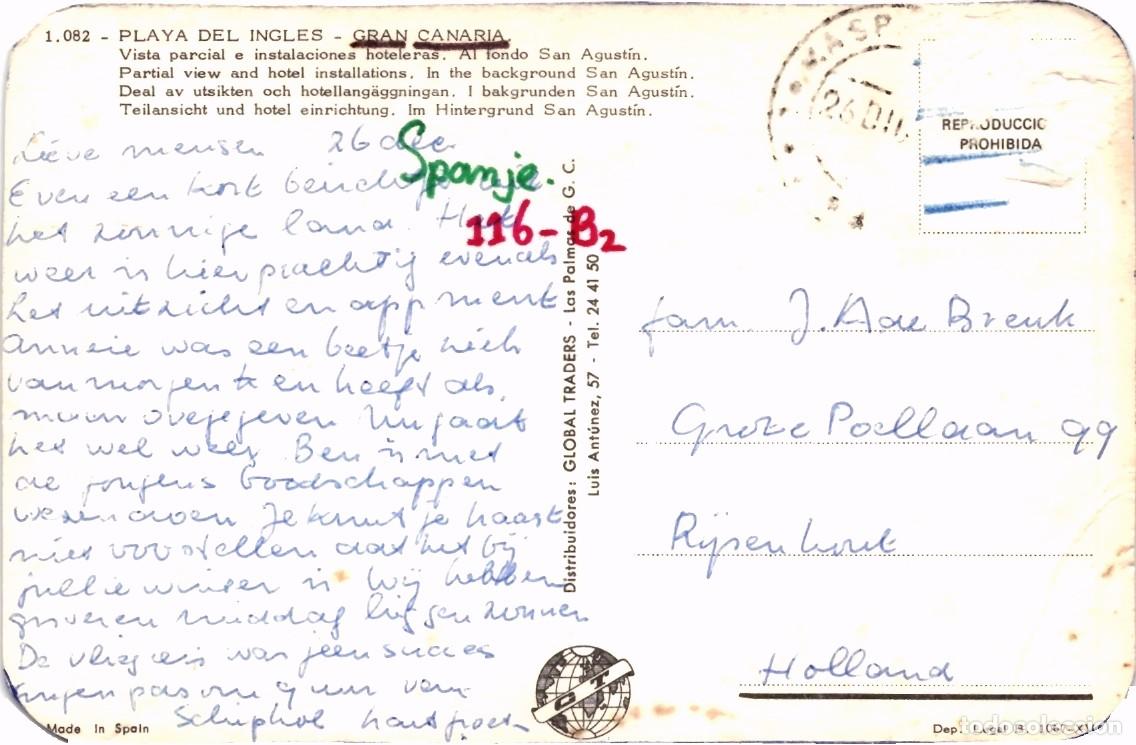 1.082 - PLAYA DEL INGLES - GRAN CANARIA.
Vista parcial e instalaciones hoteleras. Al fondo San Agustín.
Partial view and hotel installations. In the background San Agustín.
Deal av utsikten och hotellangäggningan. I bakgrunden San Agustín.
Teilansicht und hotel einrichtung. Im Hintergrund San Agustín.
MASP
26 DIC
REPRODUCCIO
PROHIBIDA
Lieve mensen 26 dec.
Spanje.
Even een kort berichtje
het zonnige land. Het
116-B2
weer is hier prachtig evenals
het uitzicht en appment
Annie was een beetje ziek
van morgen en heeft als
maar overgegeven nu gaat
het wel weer Ben is met
de jongens boodschappen
wezen doen Je kunt je haast
niet voorstellen dat het bij
jullie winter is Wij hebben
gisteren middag liggen zonnen
De vliegreis was geen succes
gingen pas om 9 uur van
Schiphol hart groeten
Distribuidores: GLOBAL TRADERS - Las Palmas de G. C.
Luis Antúnez, 57 - Tel. 24 41 50
fam. J. A de Breuk
Grote Poellaan 99
Rijsenhout
Holland
GT
Made in Spain
Dep. Legal B.
todocoleccion